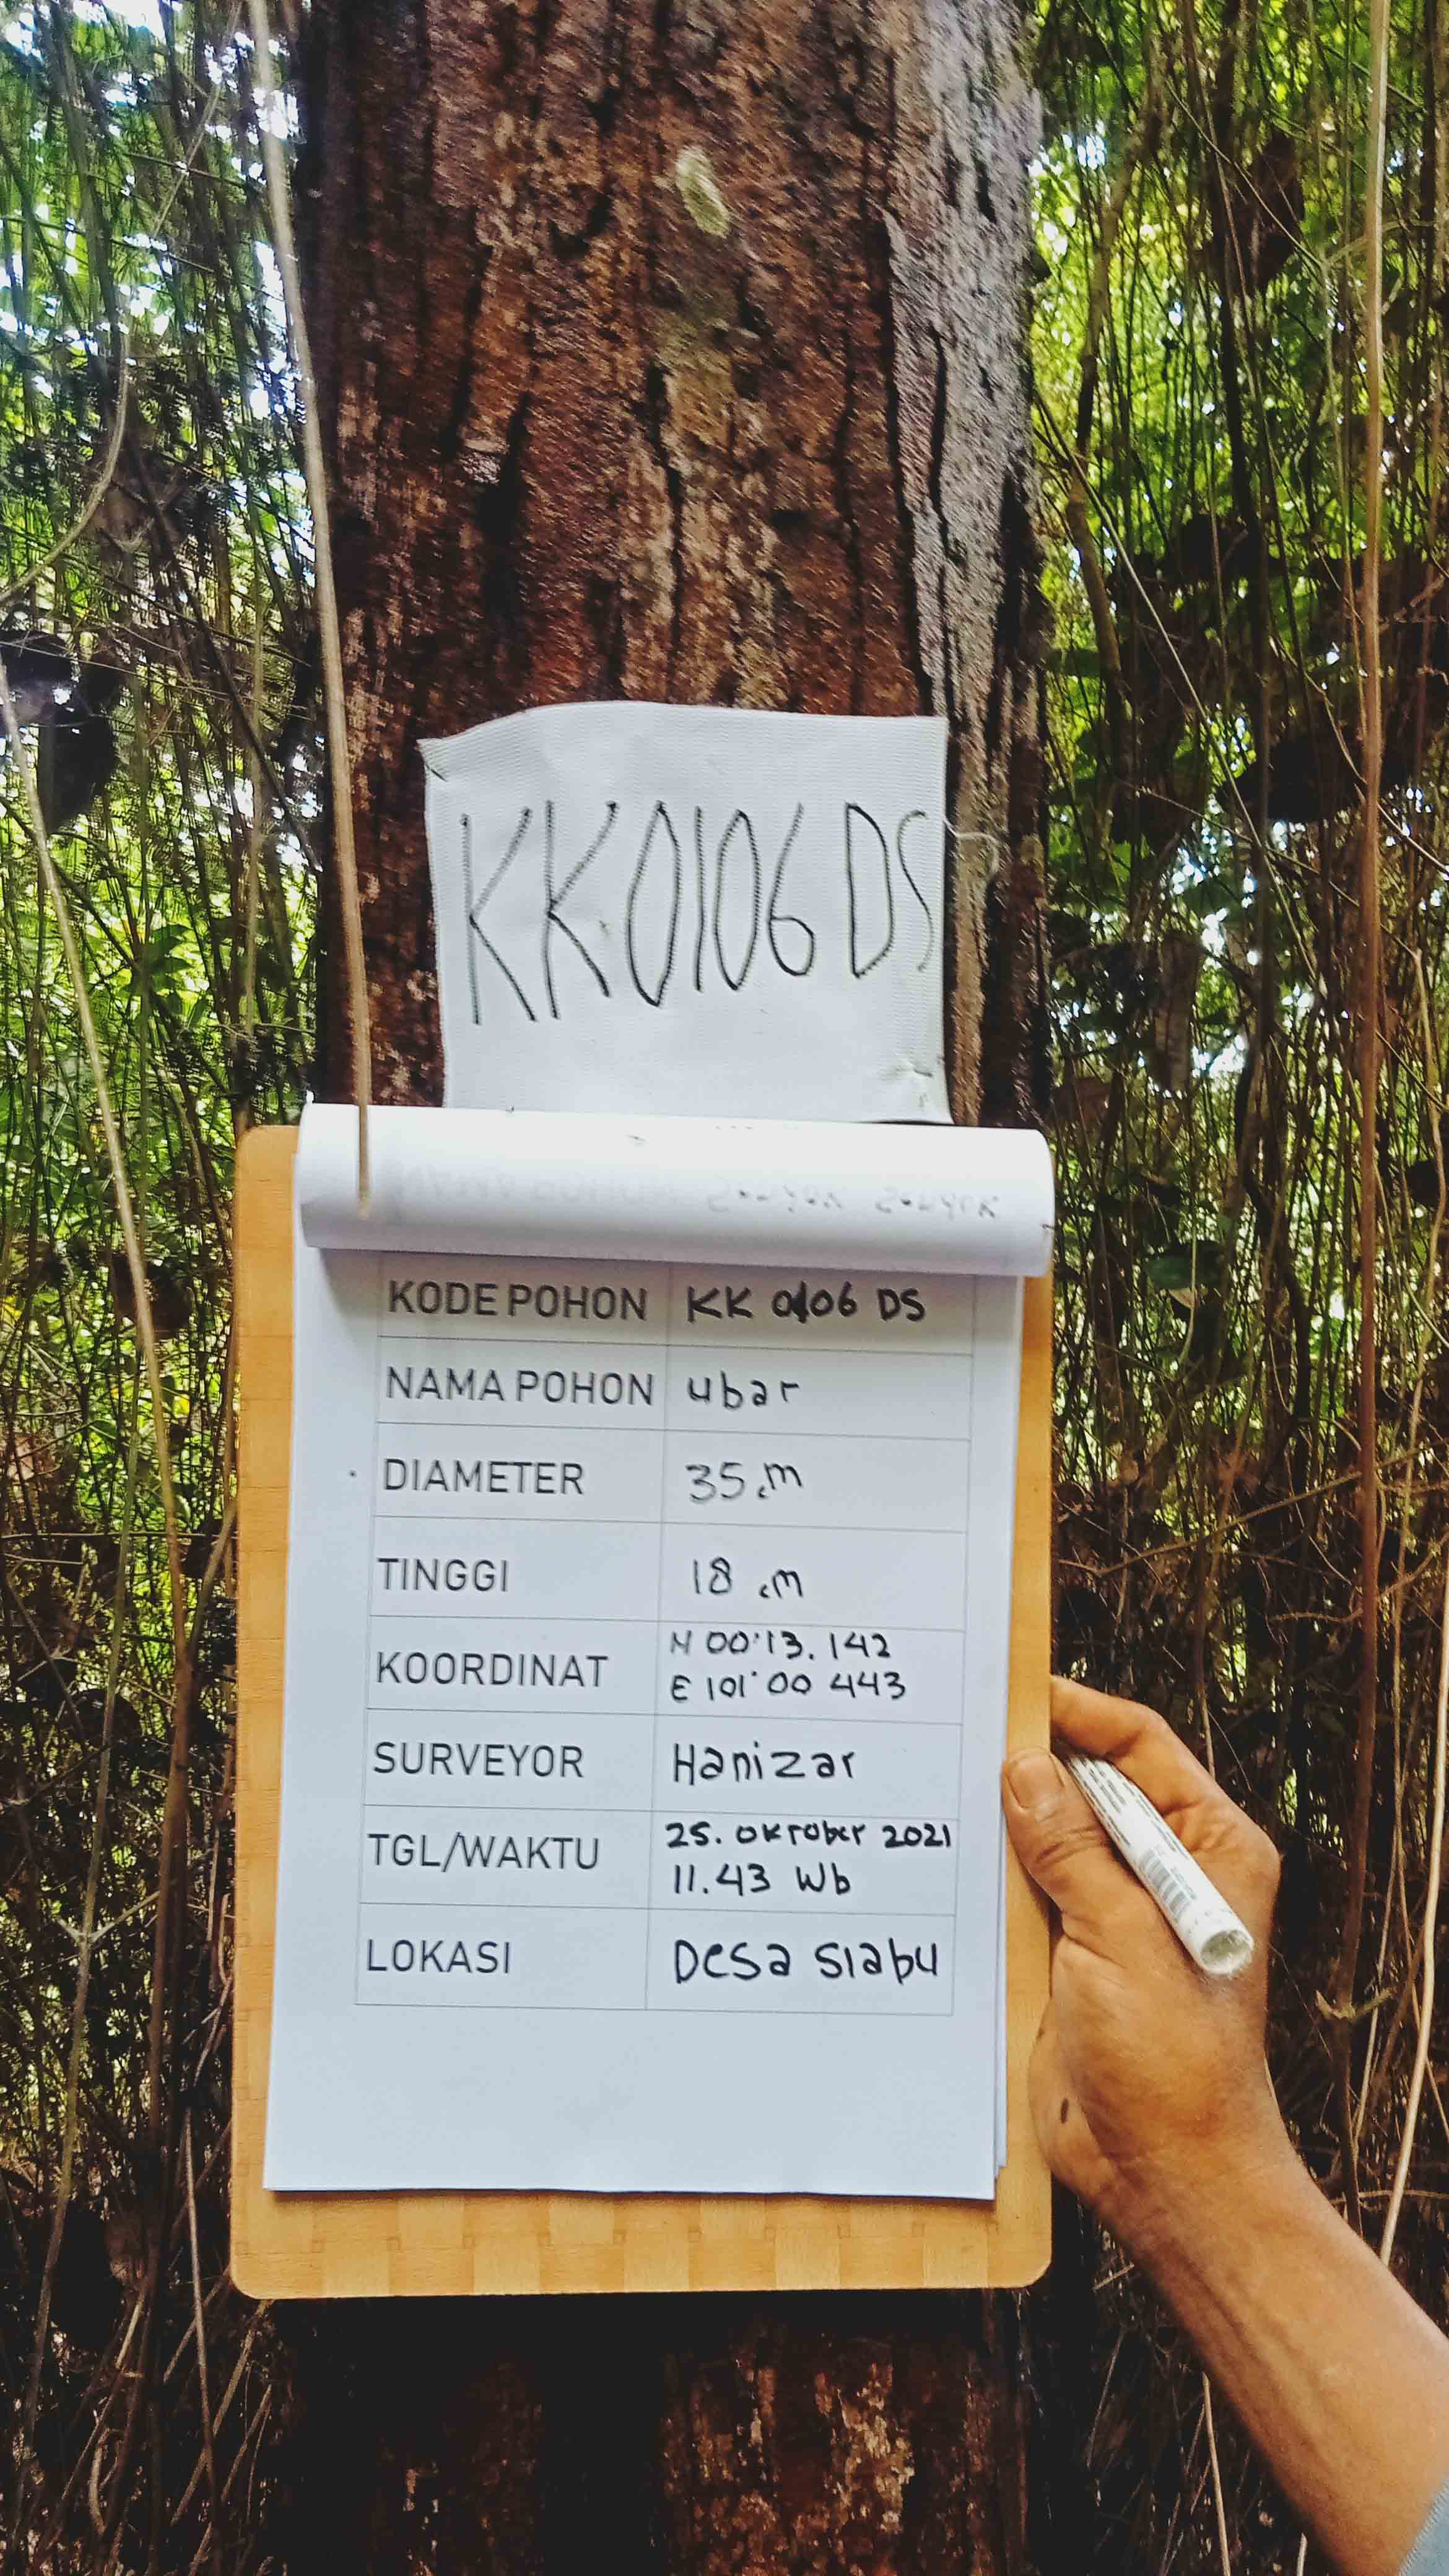 KK0106 DS
KODE POHON KK 0106 DS
NAMA POHON ubar
DIAMETER 35 cm
TINGGI 18 cm
KOORDINAT N 00°13.142
E 101°00 443
SURVEYOR Hanizar
TGL/WAKTU 25. OKTober 2021
11.43 Wb
LOKASI Desa Siabu